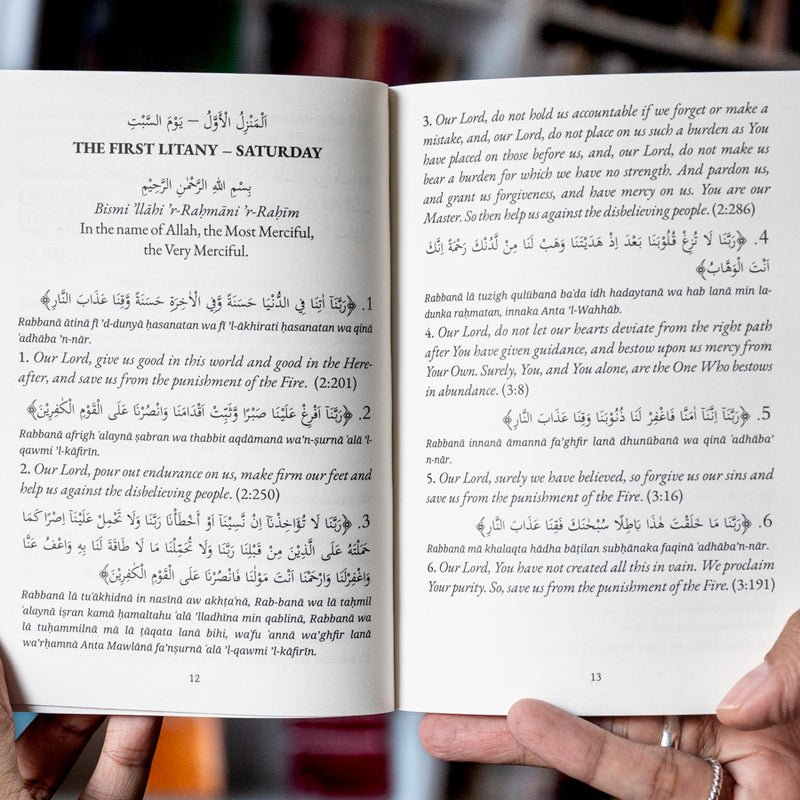 اَلْمَنْزِلُ الْأَوَّلُ – يَوْمَ السَّبْتِ
THE FIRST LITANY – SATURDAY
بِسْمِ اللهِ الرَّحْمٰنِ الرَّحِيْمِ
Bismi ’llāhi ’r-Raḥmāni ’r-Raḥīm
In the name of Allah, the Most Merciful,
the Very Merciful.
1. ﴿رَبَّنَآ اٰتِنَا فِي الدُّنْيَا حَسَنَةً وَّفِي الْاٰخِرَةِ حَسَنَةً وَّقِنَا عَذَابَ النَّارِ﴾
Rabbanā ātinā fī ’d-dunyā ḥasanatan wa fī ’l-ākhirati ḥasanatan wa qinā
ʿadhāba ’n-nār.
1. Our Lord, give us good in this world and good in the Here-
after, and save us from the punishment of the Fire. (2:201)
2. ﴿رَبَّنَآ اَفْرِغْ عَلَيْنَا صَبْرًا وَّثَبِّتْ اَقْدَامَنَا وَانْصُرْنَا عَلَى الْقَوْمِ الْكٰفِرِيْنَ﴾
Rabbanā afrigh ʿalaynā ṣabran wa thabbit aqdāmanā wa’n-ṣurnā ʿalā ’l-
qawmi ’l-kāfirīn.
2. Our Lord, pour out endurance on us, make firm our feet and
help us against the disbelieving people. (2:250)
3. ﴿رَبَّنَا لَا تُؤَاخِذْنَآ اِنْ نَّسِيْنَآ اَوْ اَخْطَأْنَا رَبَّنَا وَلَا تَحْمِلْ عَلَيْنَآ اِصْرًا كَمَا
حَمَلْتَهٗ عَلَى الَّذِيْنَ مِنْ قَبْلِنَا رَبَّنَا وَلَا تُحَمِّلْنَا مَا لَا طَاقَةَ لَنَا بِهٖ وَاعْفُ عَنَّا
وَاغْفِرْلَنَا وَارْحَمْنَا اَنْتَ مَوْلٰنَا فَانْصُرْنَا عَلَى الْقَوْمِ الْكٰفِرِيْنَ﴾
Rabbanā lā tu’ākhidnā in nasīnā aw akhṭa’nā, Rab-banā wa lā taḥmil
ʿalaynā iṣran kamā ḥamaltahu ʿalā ’lladhīna min qablinā, Rabbanā wa
lā tuḥammilnā mā lā ṭāqata lanā bihi, wa’fu ʿannā wa’ghfir lanā
wa’rḥamnā Anta Mawlānā fa’nṣurnā ʿalā ’l-qawmi ’l-kāfirīn.
12
3. Our Lord, do not hold us accountable if we forget or make a
mistake, and, our Lord, do not place on us such a burden as You
have placed on those before us, and, our Lord, do not make us
bear a burden for which we have no strength. And pardon us,
and grant us forgiveness, and have mercy on us. You are our
Master. So then help us against the disbelieving people. (2:286)
4. ﴿رَبَّنَا لَا تُزِغْ قُلُوْبَنَا بَعْدَ اِذْ هَدَيْتَنَا وَهَبْ لَنَا مِنْ لَّدُنْكَ رَحْمَةً اِنَّكَ
اَنْتَ الْوَهَّابُ﴾
Rabbanā lā tuzigh qulūbanā baʿda idh hadaytanā wa hab lanā min la-
dunka raḥmatan, innaka Anta ’l-Wahhāb.
4. Our Lord, do not let our hearts deviate from the right path
after You have given guidance, and bestow upon us mercy from
Your Own. Surely, You, and You alone, are the One Who bestows
in abundance. (3:8)
5. ﴿رَبَّنَآ اِنَّنَآ اٰمَنَّا فَاغْفِرْ لَنَا ذُنُوْبَنَا وَقِنَا عَذَابَ النَّارِ﴾
Rabbanā innanā āmannā fa’ghfir lanā dhunūbanā wa qinā ʿadhāba’
n-nār.
5. Our Lord, surely we have believed, so forgive us our sins and
save us from the punishment of the Fire. (3:16)
6. ﴿رَبَّنَا مَا خَلَقْتَ هٰذَا بَاطِلًا سُبْحٰنَكَ فَقِنَا عَذَابَ النَّارِ﴾
Rabbanā mā khalaqta hādha bāṭilan subḥānaka faqinā ʿadhāba’n-nār.
6. Our Lord, You have not created all this in vain. We proclaim
Your purity. So, save us from the punishment of the Fire. (3:191)
13